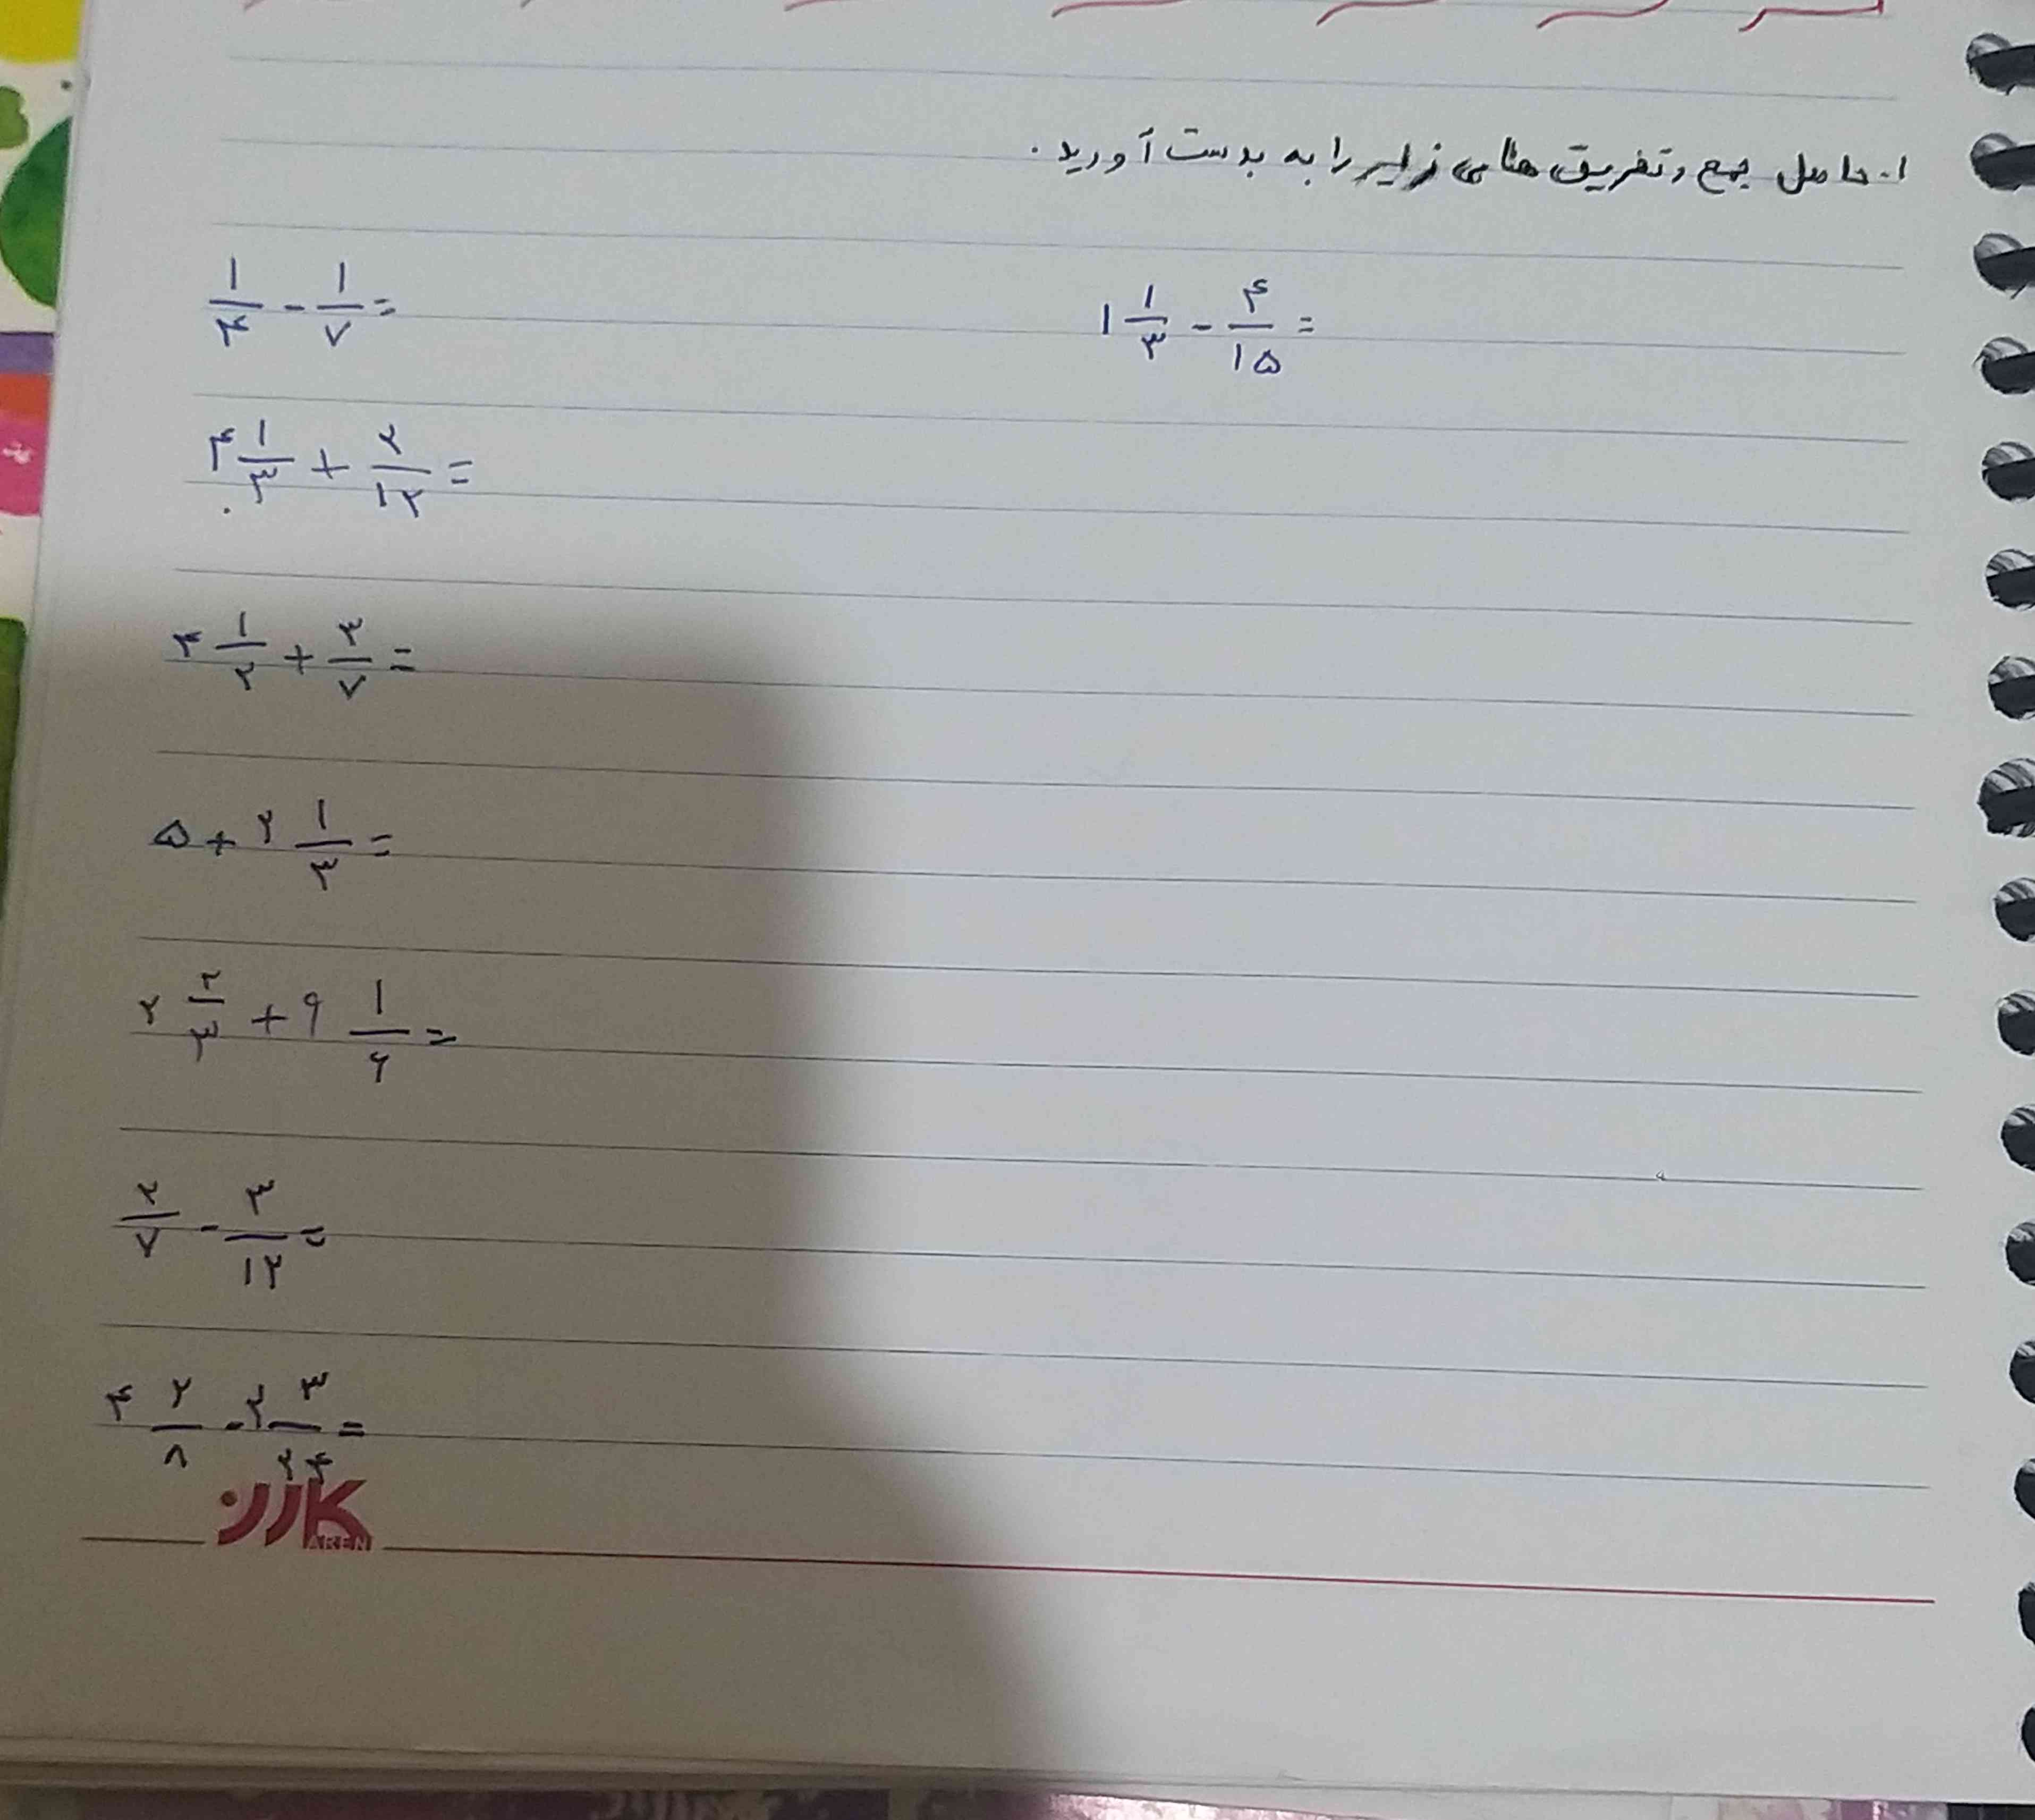 ۱. حاصل جمع و تفریق های زیر را به بدست آورید.
۱/۴ - ۱/۷ =
۱ ۱/۳ - ۴/۱۵ =
۴ ۱/۳ + ۲/۱۲ =
۴ ۱/۲ + ۳/۷ =
۵ + ۲ ۱/۳ =
۲ ۲/۳ + ۹ ۱/۶ =
۲/۷ - ۳/۱۲ =
۴ ۲/۸ - ۲ ۳/۲۴ =
کارن
KAREN